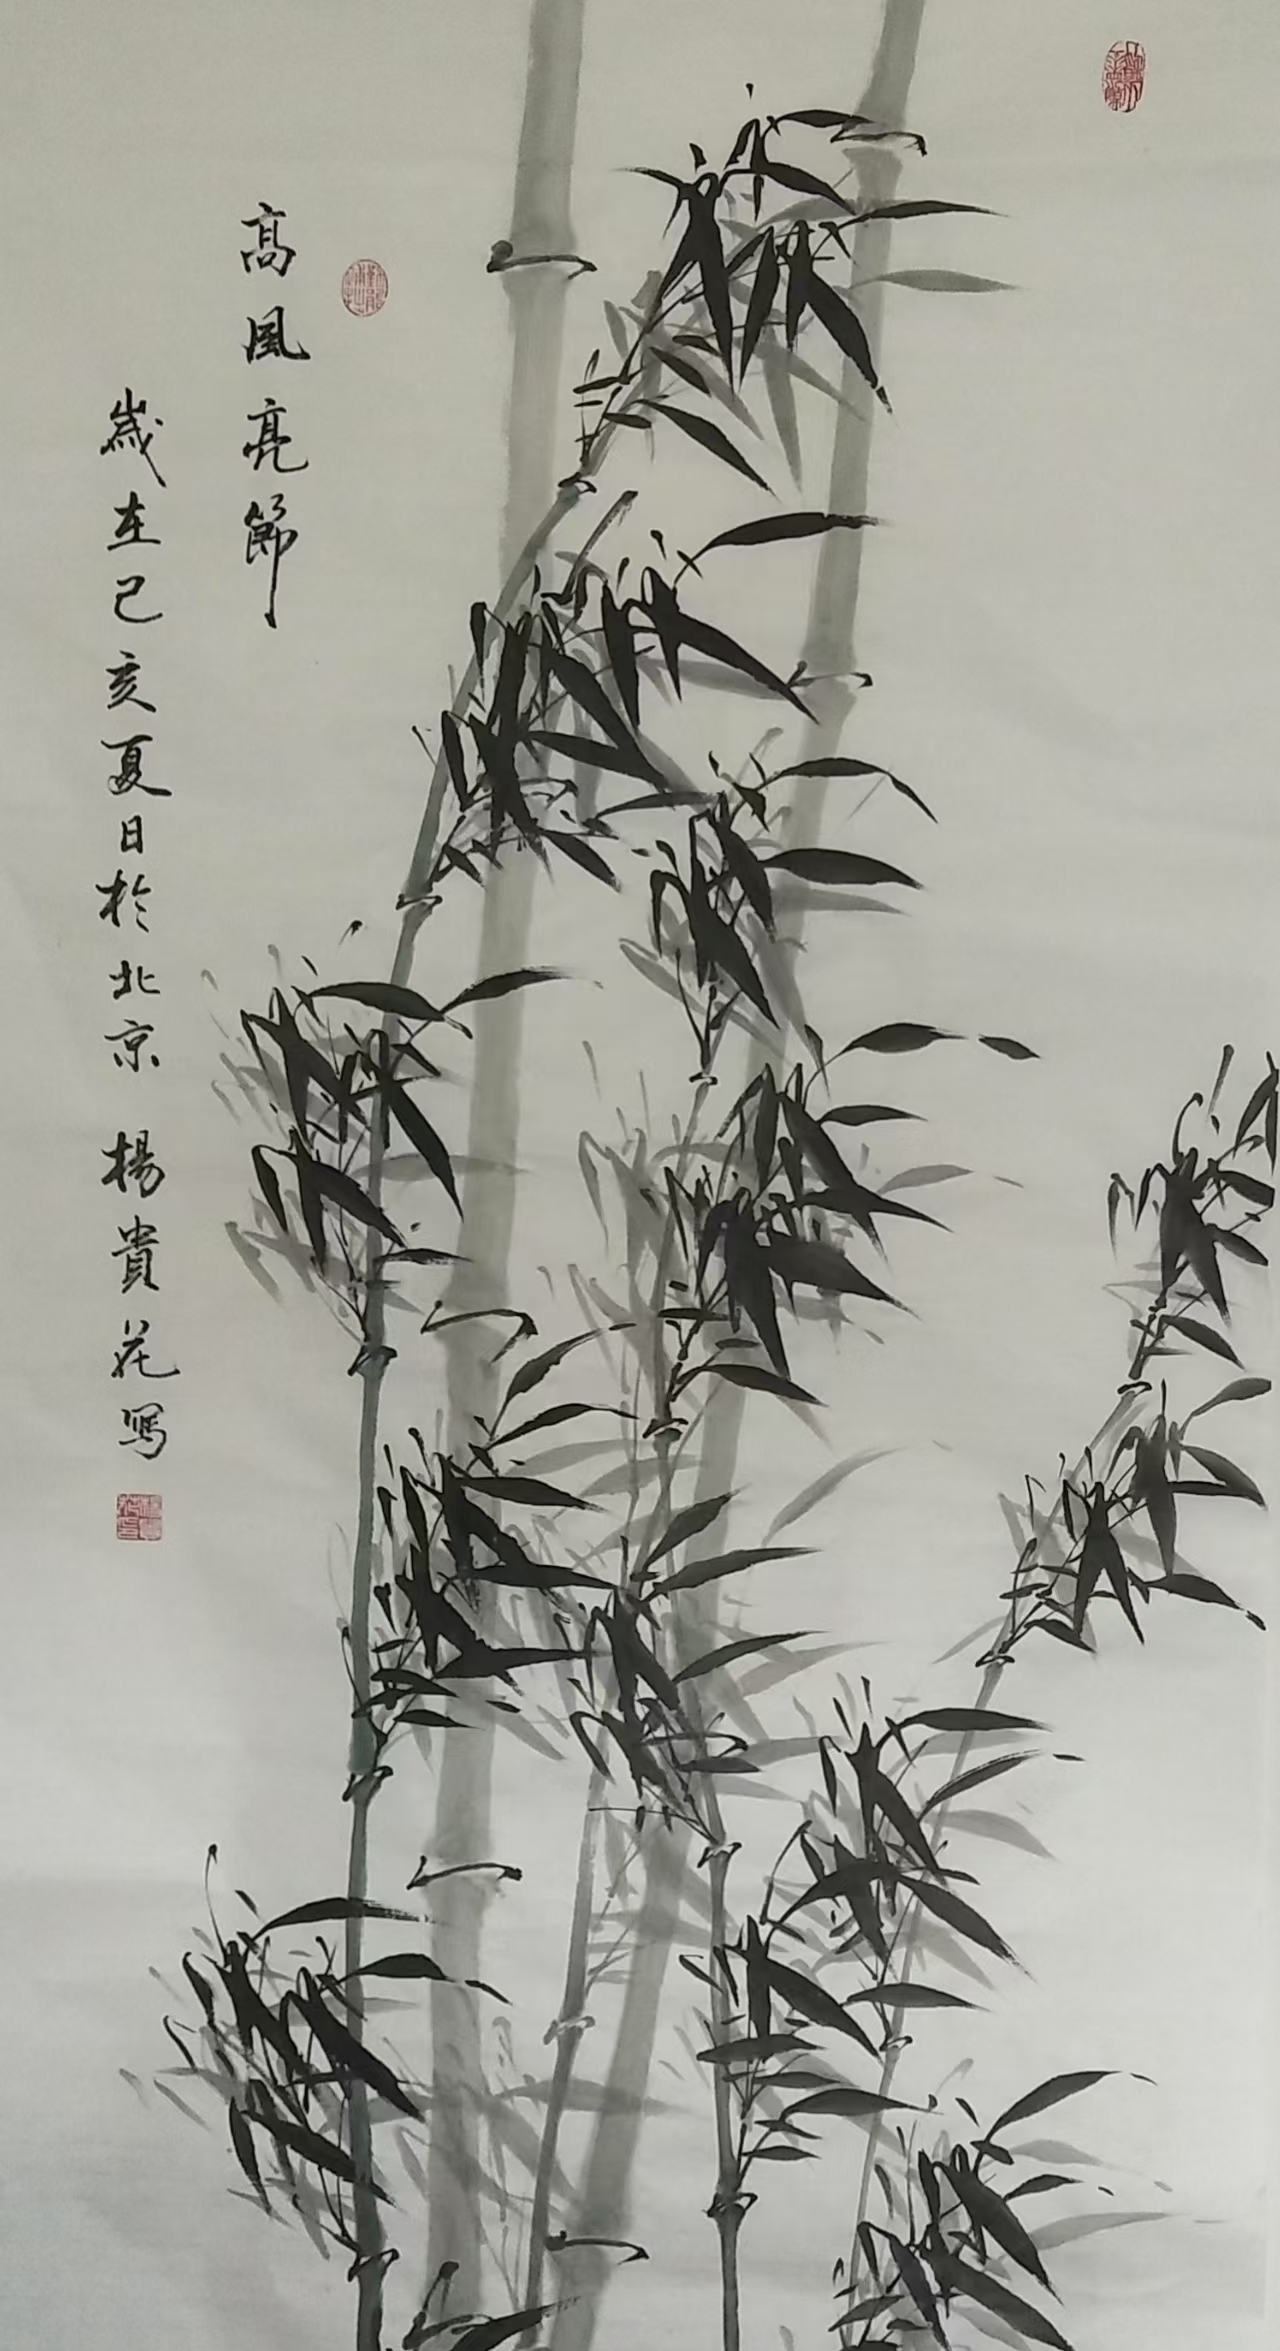 高風亮節
歲在己亥夏日於北京 楊貴花寫